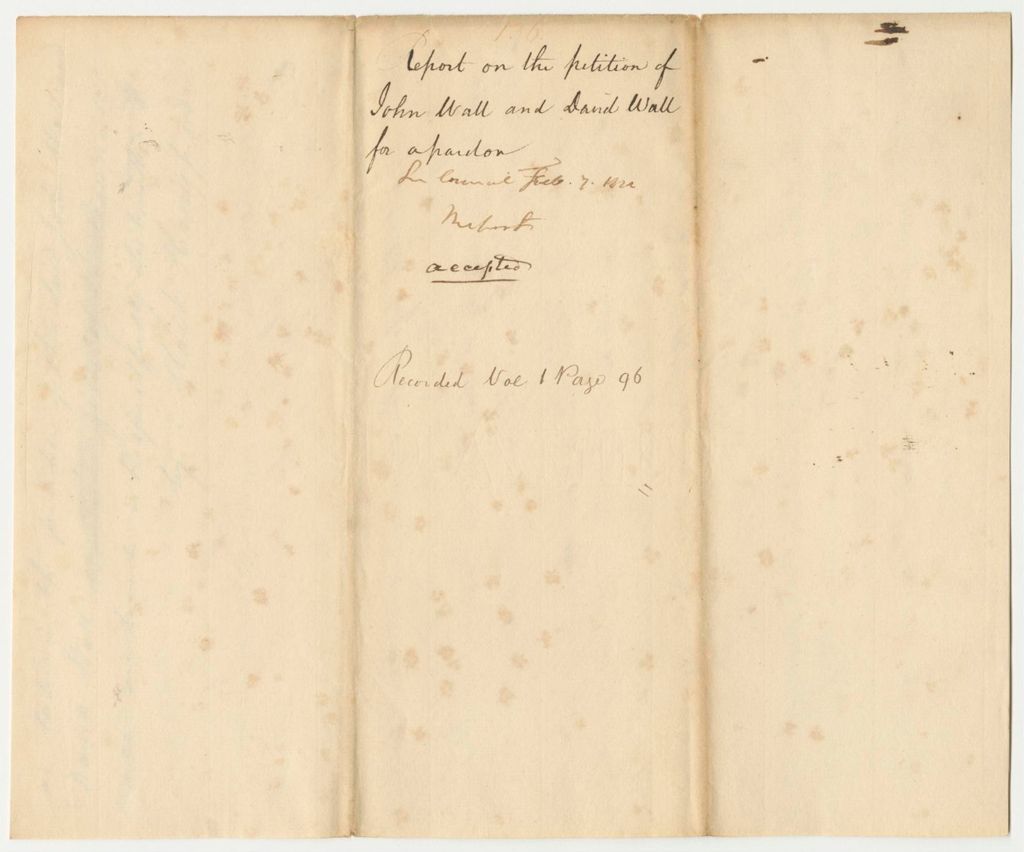 Report on the petition of
John Wall and David Wall
for a pardon
In Council Feb. 7. 1821
Report
accepted
Recorded Vol 1 Page 96